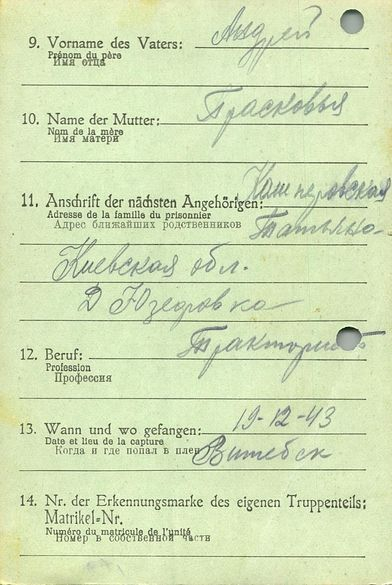 9. Vorname des Vaters: Андрей
Prénom du père
Имя отца
10. Name der Mutter: Прасковья
Nom de la mère
Имя матери
11. Anschrift der nächsten Angehörigen: Кашперовская
Adresse de la famille du prisonnier
Адрес ближайших родственников Татьяна
Киевская обл.
Д Юзефовка
12. Beruf: Тракторист
Profession
Профессия
13. Wann und wo gefangen: 19-12-43
Date et lieu de la capture
Когда и где попал в плен Витебск
14. Nr. der Erkennungsmarke des eigenen Truppenteils:
Matrikel-Nr.
Numéro du matricule de l'unité
Номер в собственной части